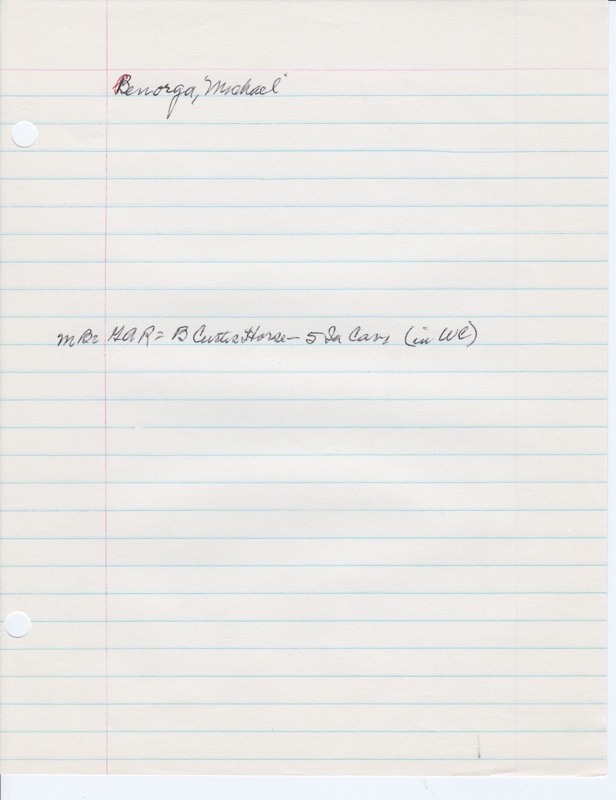 Benorga, "Michael"
MB= GAR= B Curtis Horse- 5 Ia Cav, (in WC)